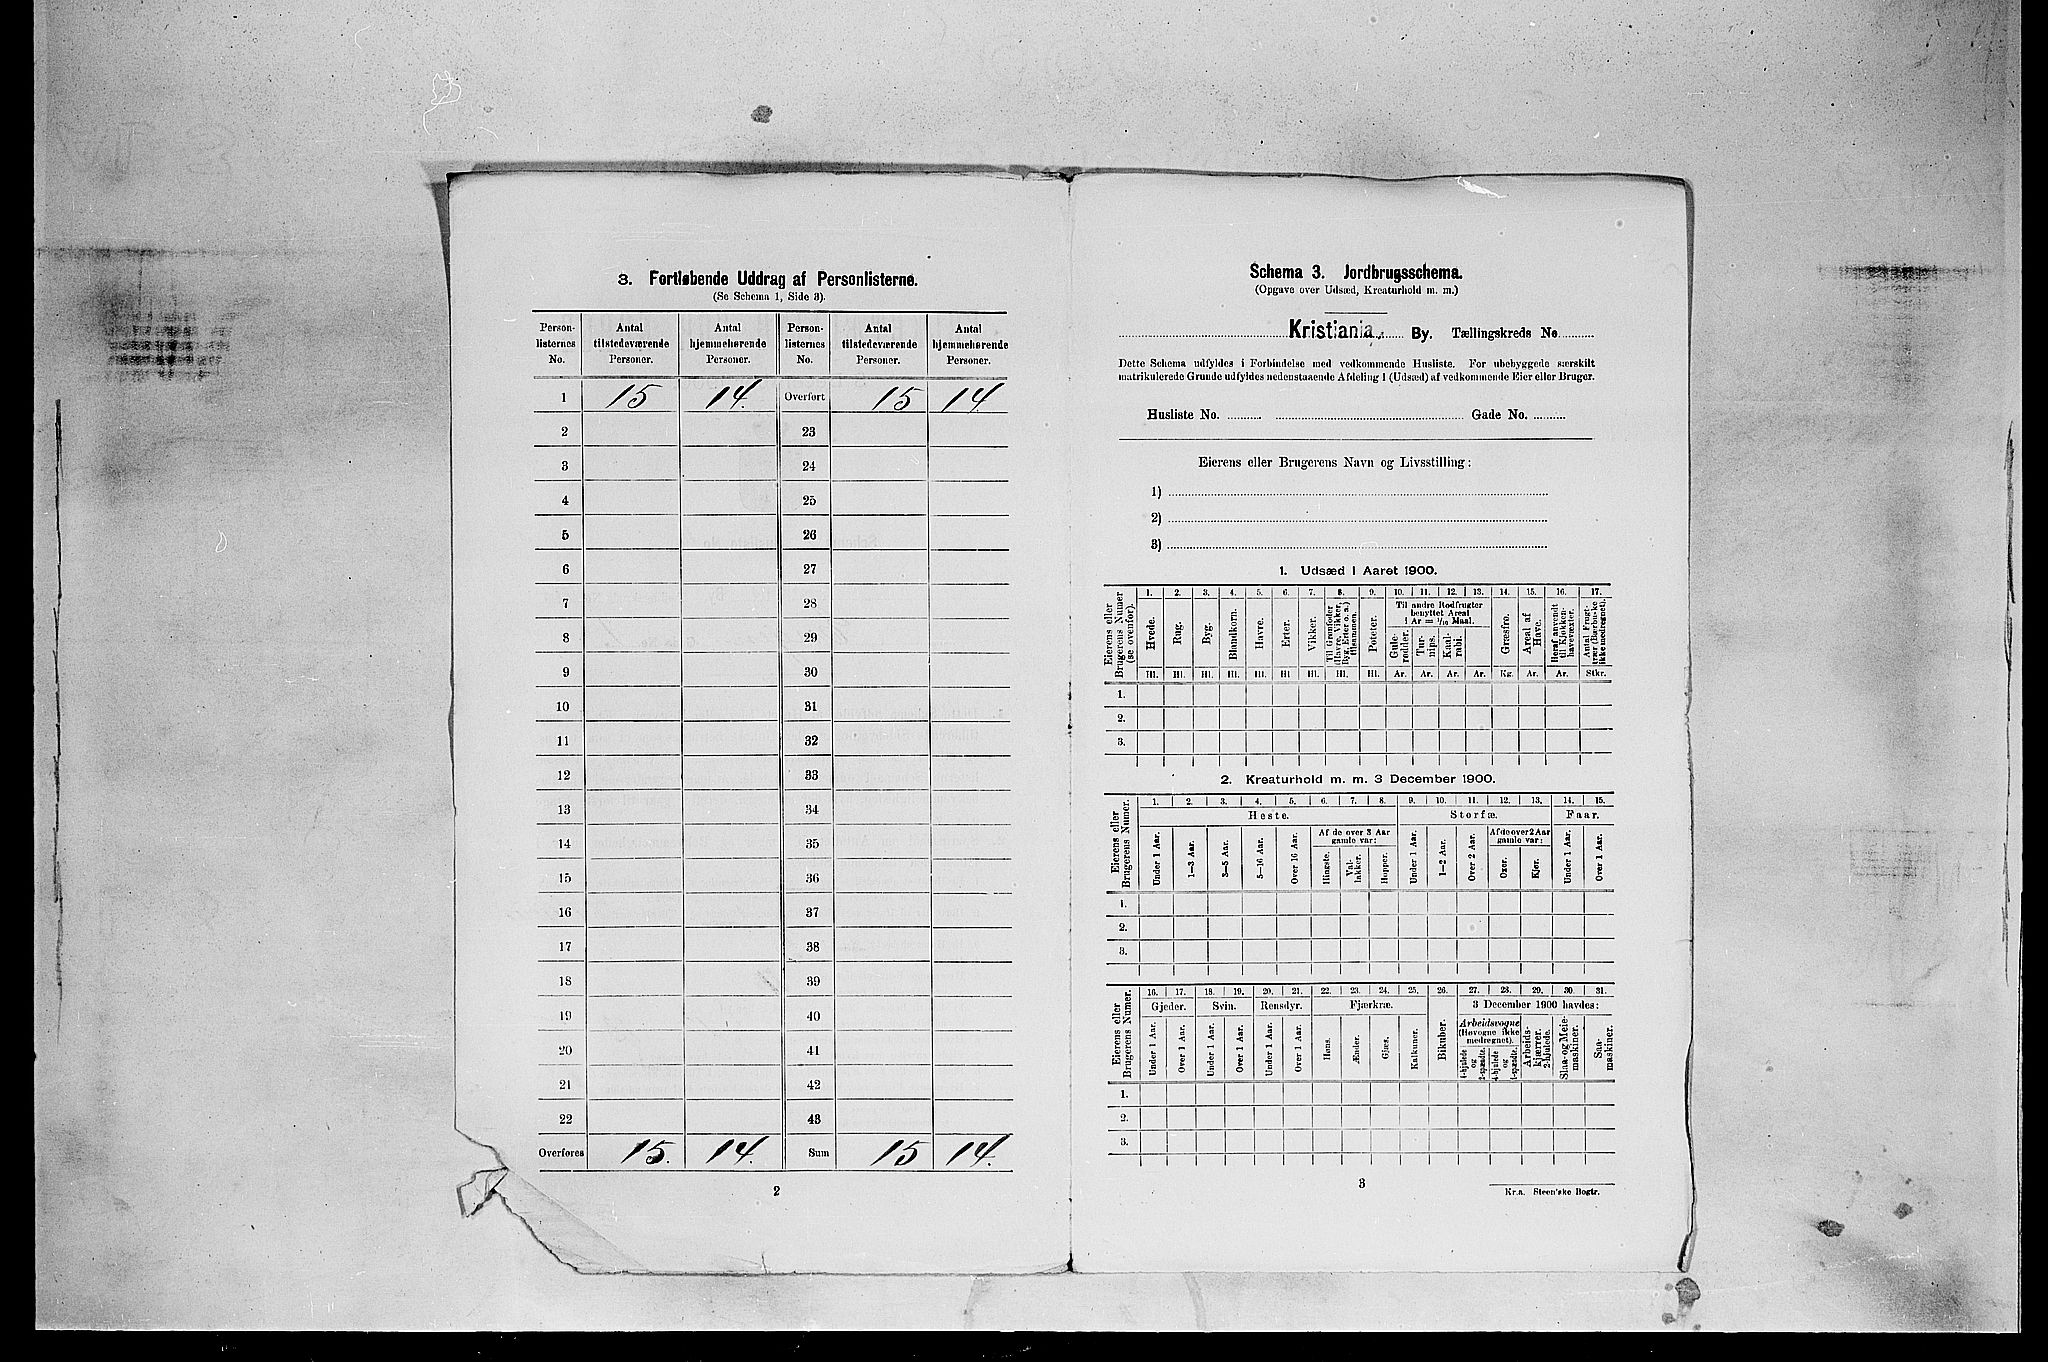 3. Fortløbende Uddrag af Personlisterne.
(Se Schema 1, Side 3).
Person-listernes No. Antal tilstedeværende Personer. Antal hjemmehørende Personer. Person-listernes No. Antal tilstedeværende Personer. Antal hjemmehørende Personer.
1 15 14. Overført 15 14
2 23
3 24
4 25
5 26
6 27
7 28
8 29
9 30
10 31
11 32
12 33
13 34
14 35
15 36
16 37
17 38
18 39
19 40
20 41
21 42
22 43
Overføres 15. 14. Sum 15 14.
2
Schema 3. Jordbrugsschema.
(Opgave over Udsæd, Kreaturhold m. m.)
Kristiania By. Tællingskreds No
Dette Schema udfyldes i Forbindelse med vedkommende Husliste. For ubebyggede særskilt
matrikulerede Grunde udfyldes nedenstaaende Afdeling 1 (Udsæd) af vedkommende Eier eller Bruger.
Husliste No. Gade No.
Eierens eller Brugerens Navn og Livsstilling:
1)
2)
3)
1. Udsæd i Aaret 1900.
Eierens eller Brugerens Numer (se ovenfor).
1. 2. 3. 4. 5. 6. 7. 8. 9. 10. 11. 12. 13. 14. 15. 16. 17.
Hvede. Rug. Byg. Blandkorn. Havre. Erter. Vikker. Til Grønfoder (Havre, Vikker, Byg, Erter o. a.) tilsammen. Poteter.
Til andre Rodfrugter benyttet Areal 1 Ar = 1/10 Maal.
Gulerødder. Turnips. Kaalrabi. Græsfrø. Areal af Have. Heraf anvendt til Kjøkkenhavevæxter. Antal Frugttrær (Bærbuske ikke medregnet).
Hl. Hl. Hl. Hl. Hl. Hl Hl. Hl. Hl. Ar. Ar. Ar. Ar. Kg. Ar. Ar. Stkr.
1.
2.
3.
2. Kreaturhold m. m. 3 December 1900.
Eierens eller Brugerens Numer.
1. 2. 3. 4. 5. 6. 7. 8. 9. 10. 11. 12. 13. 14. 15.
Heste. Storfæ. Faar.
Af de over 3 Aar gamle var: Af de over 2 Aar gamle var:
Under 1 Aar. 1–3 Aar. 3–5 Aar. 5–16 Aar. Over 16 Aar. Hingste. Vallakker. Hopper. Under 1 Aar. 1–2 Aar. Over 2 Aar. Oxer. Kjør. Under 1 Aar. Over 1 Aar.
1.
2.
3.
Eierens eller Brugerens Numer.
16. 17. 18. 19. 20. 21. 22. 23. 24. 25. 26. 27. 28. 29. 30. 31.
Gjeder. Svin. Rensdyr. Fjærkræ. 3 December 1900 havdes:
Under 1 Aar. Over 1 Aar. Under 1 Aar. Over 1 Aar. Under 1 Aar. Over 1 Aar. Høns. Ænder. Gjæs. Kalkuner. Bikuber.
Arbeidsvogne (Høvogne ikke medregnet).
4-hjulede og 2-spændte. 4-hjulede og 1-spændte. Arbeids-kjærrer, 2-hjulede. Slaa- og Meie-maskiner. Saa-maskiner.
1.
2.
3.
3
Kr.a. Steen'ske Bogtr.